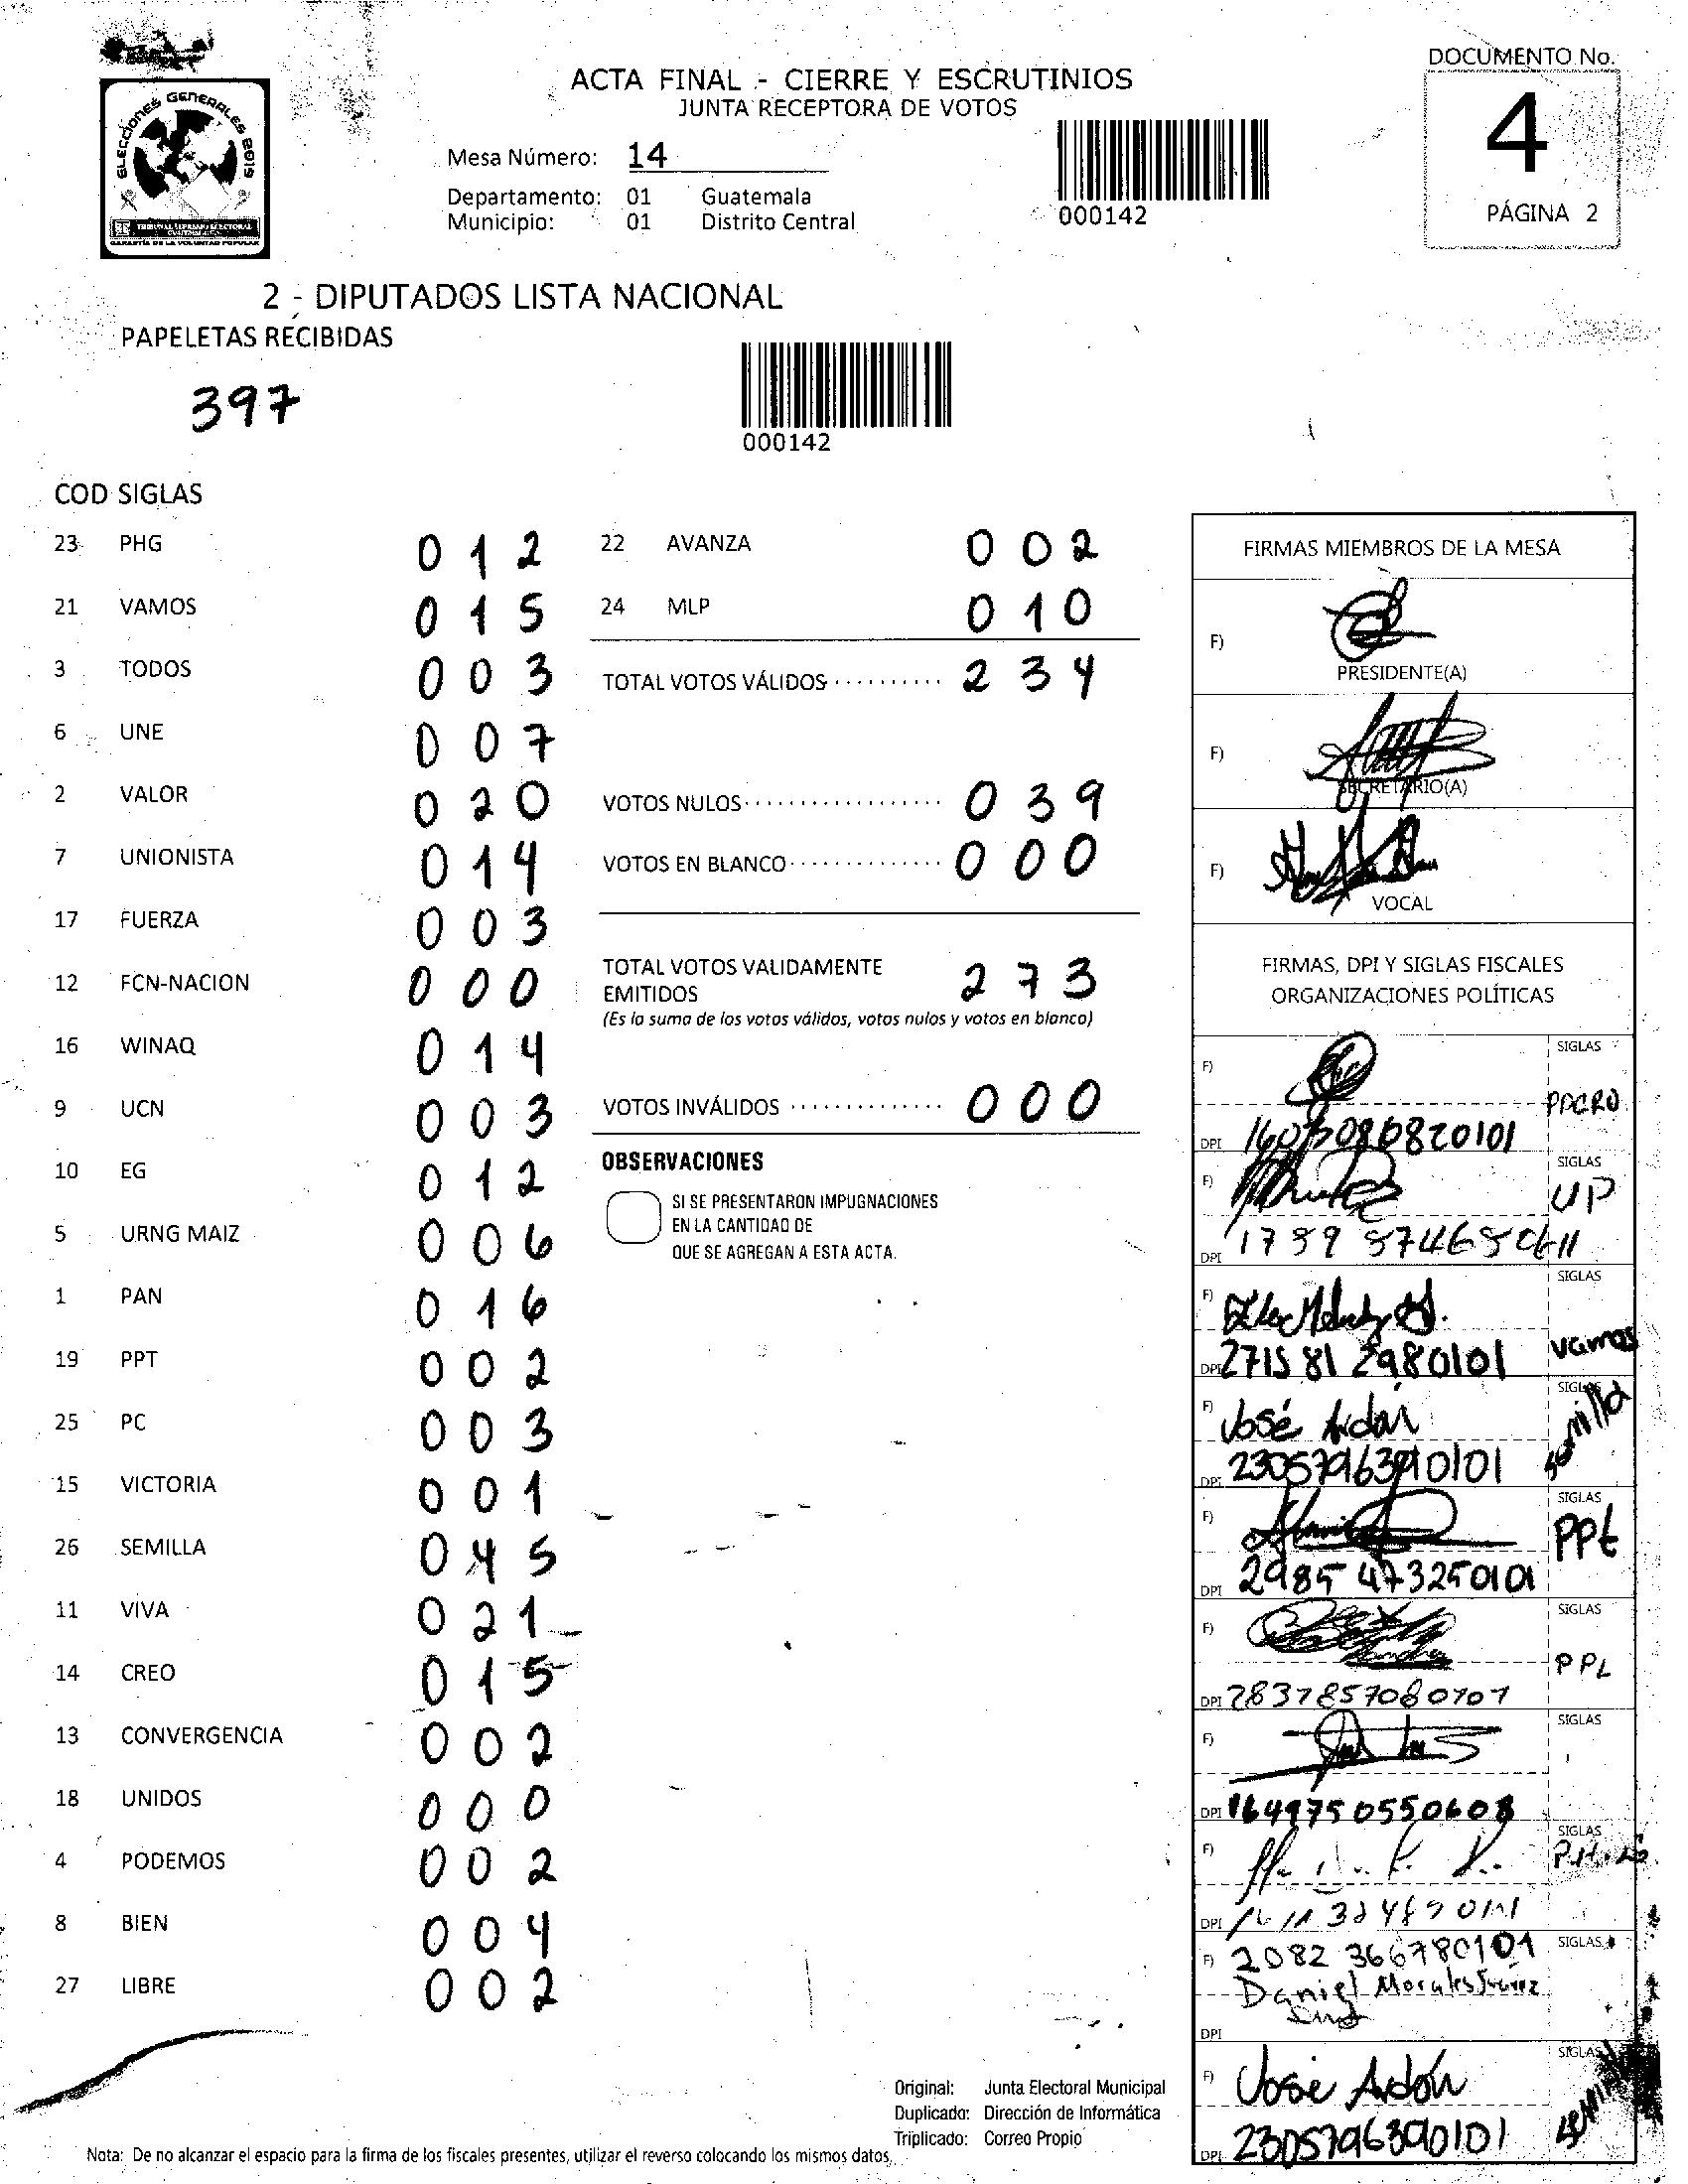 DOCUMENTO No.
4
PÁGINA 2
ELECCIONES GENERALES 2019
TRIBUNAL SUPREMO ELECTORAL
GUATEMALA, C.A.
GARANTÍA DE LA VOLUNTAD POPULAR
ACTA FINAL - CIERRE Y ESCRUTINIOS
JUNTA RECEPTORA DE VOTOS
Mesa Número: 14
Departamento: 01 Guatemala
Municipio: 01 Distrito Central
000142
2 - DIPUTADOS LISTA NACIONAL
PAPELETAS RECIBIDAS
397
000142
COD SIGLAS
23 PHG 0 1 2
21 VAMOS 0 1 5
3 TODOS 0 0 3
6 UNE 0 0 7
2 VALOR 0 2 0
7 UNIONISTA 0 1 4
17 FUERZA 0 0 3
12 FCN-NACION 0 0 0
16 WINAQ 0 1 4
9 UCN 0 0 3
10 EG 0 1 2
5 URNG MAIZ 0 0 6
1 PAN 0 1 6
19 PPT 0 0 2
25 PC 0 0 3
15 VICTORIA 0 0 1
26 SEMILLA 0 4 5
11 VIVA 0 2 1
14 CREO 0 1 5
13 CONVERGENCIA 0 0 2
18 UNIDOS 0 0 0
4 PODEMOS 0 0 2
8 BIEN 0 0 4
27 LIBRE 0 0 2
22 AVANZA 0 0 2
24 MLP 0 1 0
TOTAL VOTOS VÁLIDOS 2 3 4
VOTOS NULOS 0 3 9
VOTOS EN BLANCO 0 0 0
TOTAL VOTOS VALIDAMENTE
EMITIDOS 2 7 3
(Es la suma de los votos válidos, votos nulos y votos en blanco)
VOTOS INVÁLIDOS 0 0 0
OBSERVACIONES
SI SE PRESENTARON IMPUGNACIONES
EN LA CANTIDAD DE
QUE SE AGREGAN A ESTA ACTA.
FIRMAS MIEMBROS DE LA MESA
F)
PRESIDENTE(A)
F)
SECRETARIO(A)
F)
VOCAL
FIRMAS, DPI Y SIGLAS FISCALES
ORGANIZACIONES POLÍTICAS
F) SIGLAS
DPI
F) SIGLAS
UP
DPI
F) SIGLAS
vamos
DPI 2715 81 2980101
F) José Ardón SIGLAS
semilla
DPI 230579639 0101
F) SIGLAS
PPt
DPI 2985 47325 0101
F) SIGLAS
PPL
DPI
F) SIGLAS
DPI 1649750550608
F) SIGLAS
DPI
F) 2082 366780101 SIGLAS
Daniel Morales Juárez
DPI
F) José Ardón SIGLAS
SEMILLA
DPI 2305796390101
Original: Junta Electoral Municipal
Duplicado: Dirección de Informática
Triplicado: Correo Propio
Nota: De no alcanzar el espacio para la firma de los fiscales presentes, utilizar el reverso colocando los mismos datos.